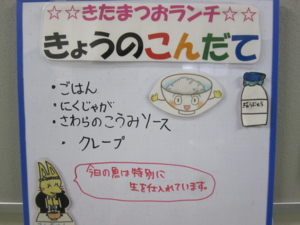 ☆☆きたまつおランチ☆☆
きょうのこんだて
・ごはん
・にくじゃが
・さわらのこうみソース
・クレープ
今日の魚は特別に
生を仕入れています。